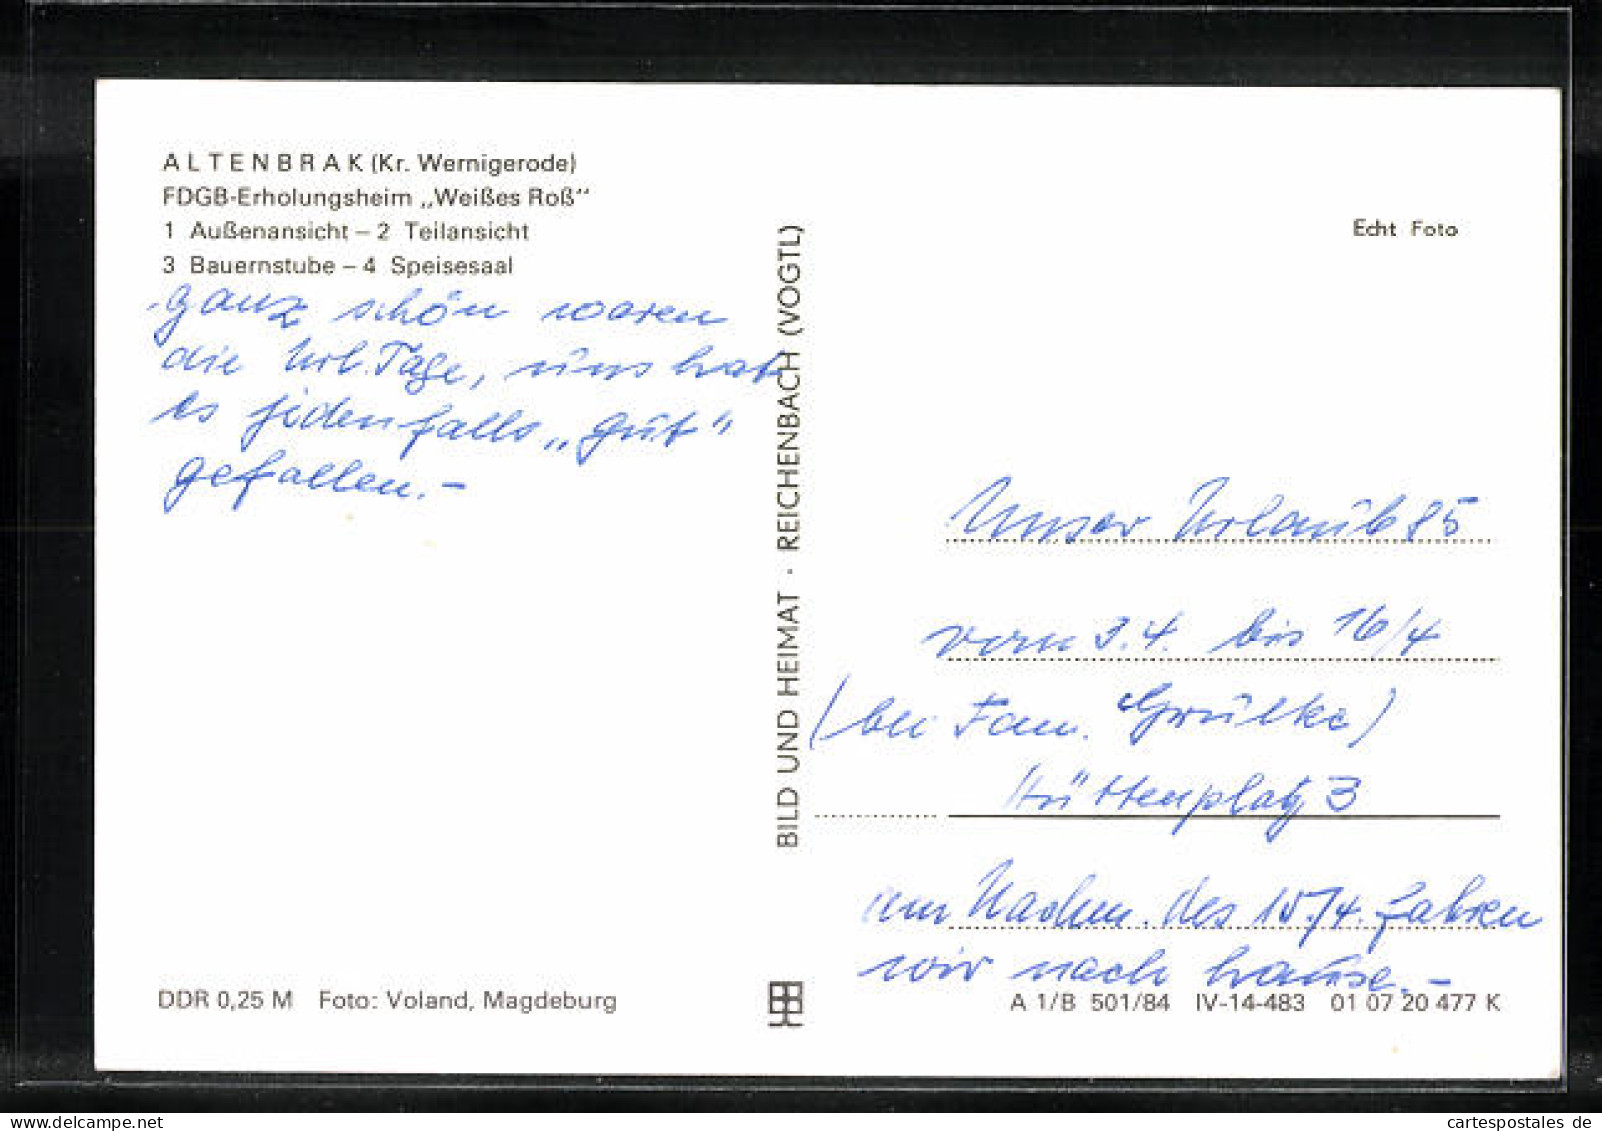 ALTENBRAK (Kr. Wernigerode)
FDGB-Erholungsheim „Weißes Roß“
1 Außenansicht – 2 Teilansicht
3 Bauernstube – 4 Speisesaal
ganz schön waren
die Url. Tage, uns hat
es jedenfalls „gut“
gefallen. –
BILD UND HEIMAT · REICHENBACH (VOGTL)
Echt Foto
Unser Urlaub 85
vom 3.4. bis 16/4
(bei Fam. Grülke)
Hüttenplatz 3
am Nachm. des 15./4. fahren
wir nach hause. –
DDR 0,25 M Foto: Voland, Magdeburg
A 1/B 501/84 IV-14-483 01 07 20 477 K
cartespostales de